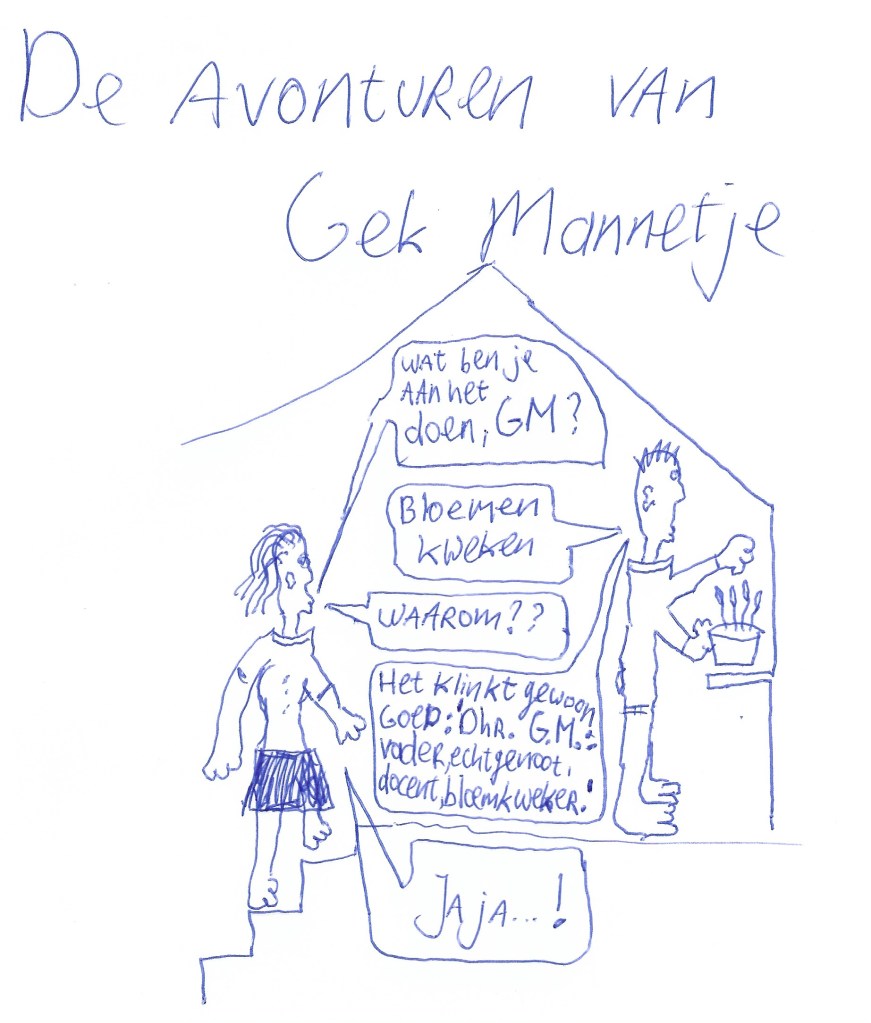 De Avonturen van
Gek Mannetje
Wat ben je
aan het
doen, GM?
Bloemen
kweken
Waarom??
Het klinkt gewoon
Goed: "Dhr. G.M.:
vader, echtgenoot,
docent, bloemkweker."
Jaja...!